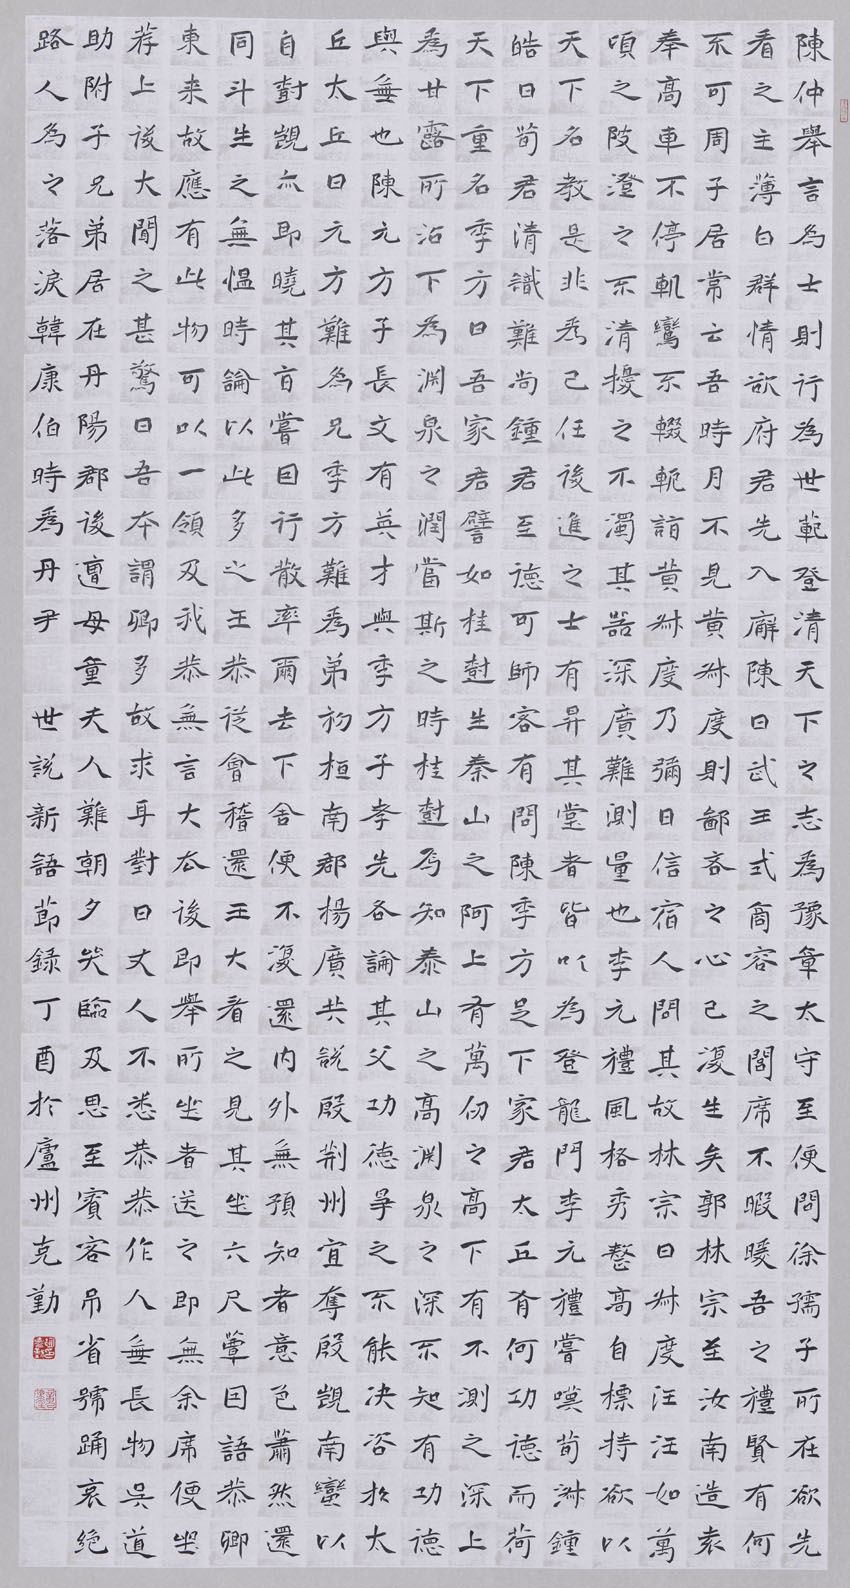 陳仲舉言為士則行為世範登清天下之志為豫章太守至便問徐孺子所在欲先
看之主薄白群情欲府君先入廨陳曰武王式商容之閭席不暇暖吾之禮賢有何
不可周子居常云吾時月不見黄叔度則鄙吝之心已復生矣郭林宗至汝南造袁
奉高車不停軌鸞不輟軛詣黄叔度乃彌日信宿人問其故林宗曰叔度汪汪如萬
頃之陂澄之不清擾之不濁其器深廣難測量也李元禮風格秀整高自標持欲以
天下名教是非為己任後進之士有昇其堂者皆以為登龍門李元禮嘗嘆荀淑鍾
皓曰荀君清識難尚鍾君至德可師客有問陳季方足下家君太丘有何功德而荷
天下重名季方曰吾家君譬如桂樹生泰山之阿上有萬仞之高下有不測之深上
為甘露所沾下為淵泉之潤當斯之時桂樹焉知泰山之高淵泉之深不知有功德
與無也陳元方子長文有英才與季方子孝先各論其父功德爭之不能决咨於太
丘太丘曰元方難為兄季方難為弟初桓南郡楊廣共說殷荆州宜奪殷覬南蠻以
自樹覬亦即曉其旨嘗因行散率爾去下舍便不復還内外無預知者意色蕭然還
同斗生之無慍時論以此多之王恭從會稽還王大看之見其坐六尺簟因語恭卿
東来故應有此物可以一領及我恭無言大去後即舉所坐者送之即無余席便坐
荐上後大聞之甚驚曰吾本謂卿多故求耳對曰丈人不悉恭恭作人無長物吳道
助附子兄弟居在丹陽郡後遭母童夫人難朝夕哭臨及思至賓客吊省號踊哀絶
路人為之落淚韓康伯時為丹尹 世說新語節録丁酉於廬州克勤